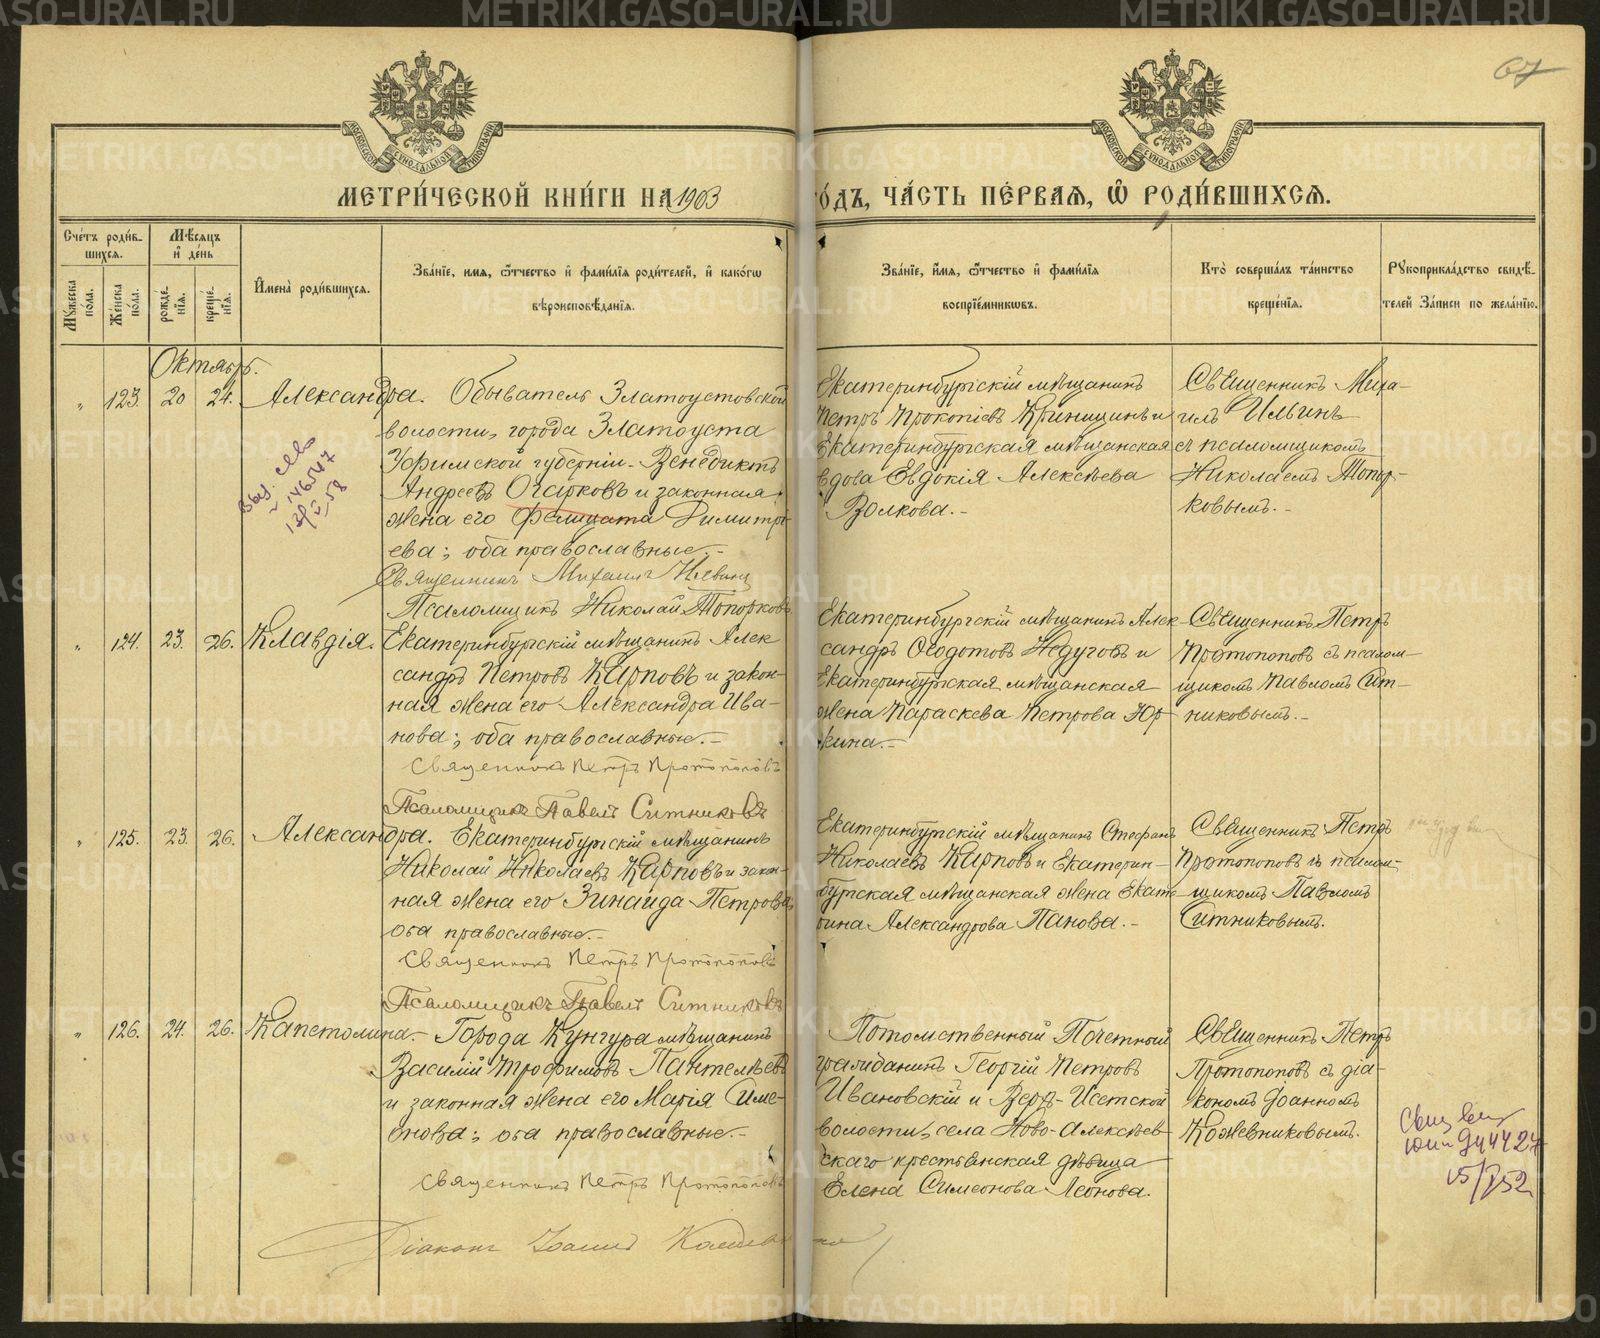 METRIKI.GASO-URAL.RU
67
МОСКОВСКОЙ СѴНОДАЛЬНОЙ ТИПОГРАФІИ
МОСКОВСКОЙ СѴНОДАЛЬНОЙ ТИПОГРАФІИ
МЕТРИ́ЧЕСКОЙ КНИ́ГИ НА 1903
ГО́ДЪ, ЧА́СТЬ ПЕ́РВАЯ, Ѡ҆ РОДИ́ВШИХСЯ.
Сче́тъ роди́в-
шихся.
Мѣ́сяцъ
и҆ де́нь
Му́жеска по́ла.
Же́нска по́ла.
рожде́нїя.
креще́нїя.
И҆мена̀ роди́вшихся.
Зва́нїе, и҆мя, ѻ҆́тчество и҆ фами́лїя роди́телей, и҆ како́гѡ
вѣроисповѣ́данїя.
Зва́нїе, и҆́мя, ѻ҆́тчество и҆ фами́лїя
воспрїе́мникѡвъ.
Кто̀ соверша́лъ та́инство
креще́нїя.
Рꙋкоприкла́дство свидѣ́-
телей За́писи по жела́нїю.
Октябрь.
" 123. 20 24. Александра. Обыватель Златоустовской
волости, города Златоуста
Уфимской губерніи Венедиктъ
Андреевъ Огарковъ и законная
жена его Фелицата Димитрі-
ева; оба православные.-
Священникъ Михаилъ Ильинъ
Псаломщикъ Николай Топорковъ
Екатеринбургскій мѣщанинъ
Петръ Прокопіевъ Криницинъ и
Екатеринбургская мѣщанская
вдова Евдокія Алексѣева
Волкова.-
Священникъ Миха-
илъ Ильинъ
съ псаломщикомъ
Николаемъ Топор-
ковымъ.-
Выд. св-во
146547
58
" 124. 23. 26. Клавдія. Екатеринбургскій мѣщанинъ Алек
сандръ Петровъ Карповъ и закон-
ная жена его Александра Ива-
нова; оба православные.-
Священникъ Петръ Протопоповъ
Псаломщикъ Павелъ Ситниковъ
Екатеринбургскій мѣщанинъ Алек-
сандръ Ѳеодотовъ Недуговъ и
Екатеринбургская мѣщанская
жена Параскева Петрова Юр-
кина.-
Священникъ Петръ
Протопоповъ съ псалом-
щикомъ Павломъ Сит-
никовымъ.-
" 125. 23. 26. Александра. Екатеринбургскій мѣщанинъ
Николай Николаевъ Карповъ и закон-
ная жена его Зинаида Петрова,
оба православные.-
Священникъ Петръ Протопоповъ
Псаломщикъ Павелъ Ситниковъ
Екатеринбургскій мѣщанинъ Стефанъ
Николаевъ Карповъ и Екатерин-
бургская мѣщанская жена Екате-
рина Александрова Панова.-
Священникъ Петръ
Протопоповъ съ псалом-
щикомъ Павломъ
Ситниковымъ.
" 126. 24. 26. Капетолина.- Города Кунгура мѣщанинъ
Василій Трофимовъ Пантелѣевъ
и законная жена его Марія Симе-
онова; оба православные.-
Священникъ Петръ Протопоповъ
Діаконъ Іоаннъ Кожевниковъ
Потомственный Почетный
гражданинъ Георгій Петровъ
Ивановскій и Верхъ-Исетской
волости, села Ново-Алексѣев-
скаго крестьянская дѣвица
Елена Симеонова Леонова.
Священникъ Петръ
Протопоповъ съ діа-
кономъ Іоанномъ
Кожевниковымъ.
944427